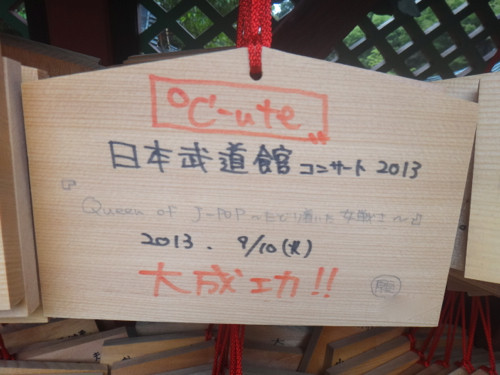 ℃-ute
日本武道館コンサート2013
『Queen of J-POP〜たどり着いた女戦士〜』
2013. 9/10(火)
大成功!!